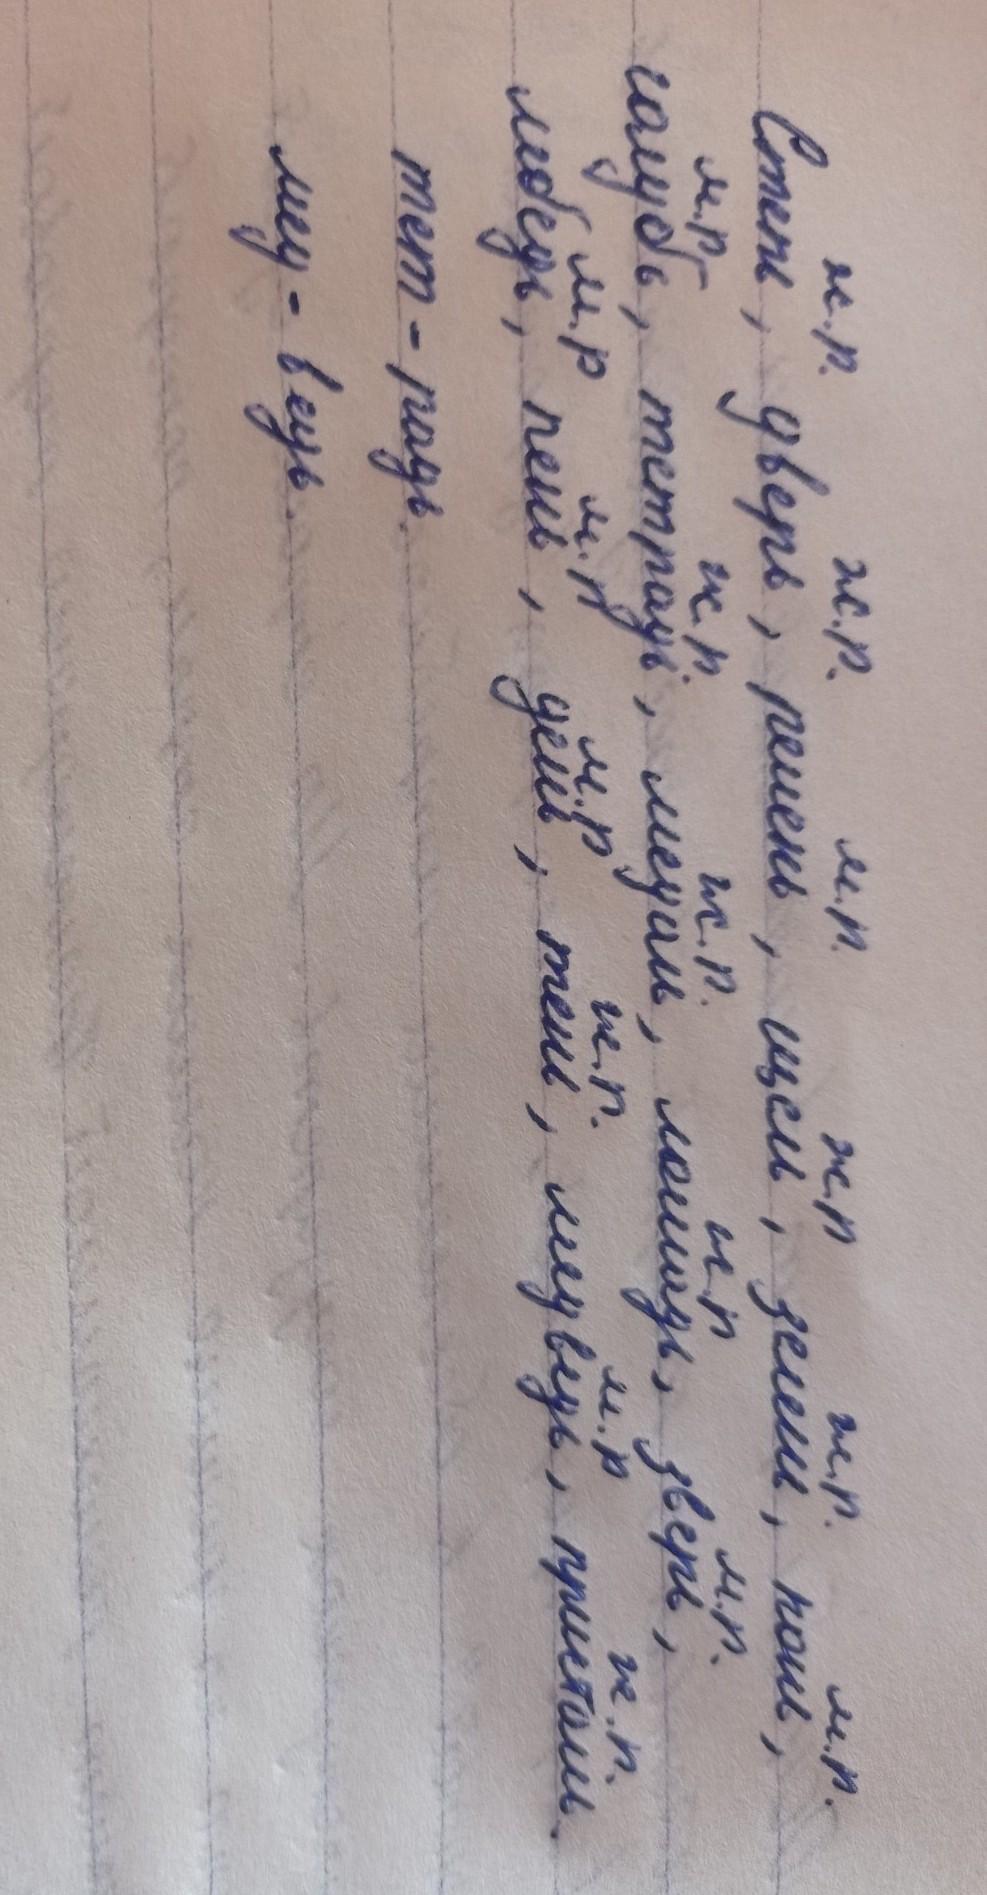 ж.р. ж.р. м.р. ж.р ж.р. м.р.
Степь, дверь, ремень, щель, зелень, конь,
м.р. ж.р. ж.р. ж.р м.р.
голубь, тетрадь, медаль, лошадь, зверь,
м.р м.р м.р. ж.р. м.р ж.р.
лебедь, пень, день, тень, медведь, пристань.
тет-радь.
мед-ведь.